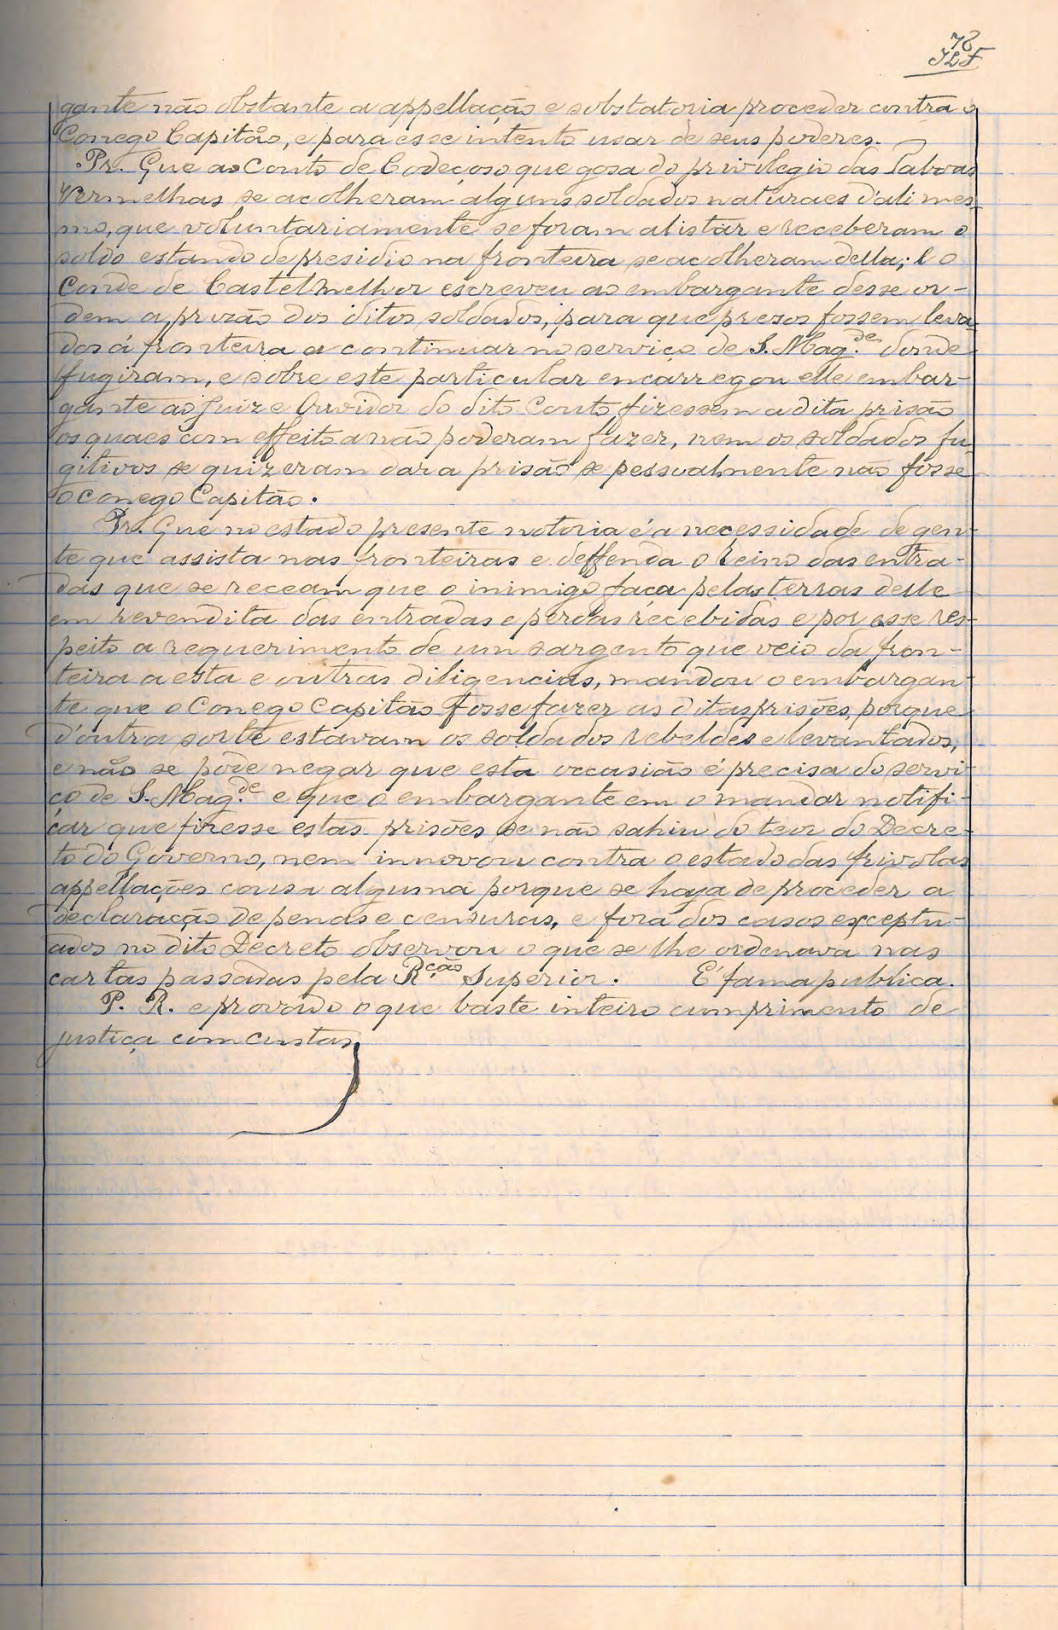 78
gante não obstante a appellação e sobstatoria proceder contra o
Conego Capitão, e para esse intento usar de seus poderes.
Pr. Que ao Couto de Codeçoso que gosa do privilegio das Taboas
Vermelhas se acolheram alguns soldados naturaes d'ali mes-
mo, que voluntariamente se foram alistar e receberam o
soldo estando de presidio na fronteira se acolheram della; e o
Conde de Castelmelhor escreveu ao embargante desse or-
dem a prizão dos ditos soldados, para que presos fossem leva-
dos á fronteira a continuar no serviço de S. Mag.de donde
fugiram, e sobre este particular encarregou elle embar-
gante ao Juiz e Ouvidor do dito Couto fizessem a dita prisão
os quaes com effeito a não poderam fazer, nem os soldados fu-
gitivos se quizeram dar a prisão se pessoalmente não fosse
o Conego Capitão.
Pr. Que no estado presente notoria é a necessidade de gen-
te que assista nas fronteiras e deffenda o Reino das entra-
das que se receam que o inimigo faça pelas terras delle
em revendita das entradas e perdas recebidas e por esse res-
peito a requerimento de um sargento que veio da fron-
teira a esta e outras diligencias, mandou o embargan-
te que o Conego Capitão fosse fazer as ditas prisões, porque
d'outra sorte estavam os soldados rebeldes e levantados,
e não se pode negar que esta occasião é precisa do servi-
ço de S. Mag.de e que o embargante em o mandar notifi-
car que fizesse estas prisões se não sahiu do teor do Decre-
to do Governo, nem innovou contra o estado das frivolas
appellações cousa alguma porque se haja de proceder a
declaração de penas e censuras, e fora dos casos exceptu-
ados no dito Decreto observou o que se lhe ordenava nas
cartas passadas pela R.ção Superior. É fama publica.
P. R. e provado o que baste inteiro cumprimento de
justiça com custas